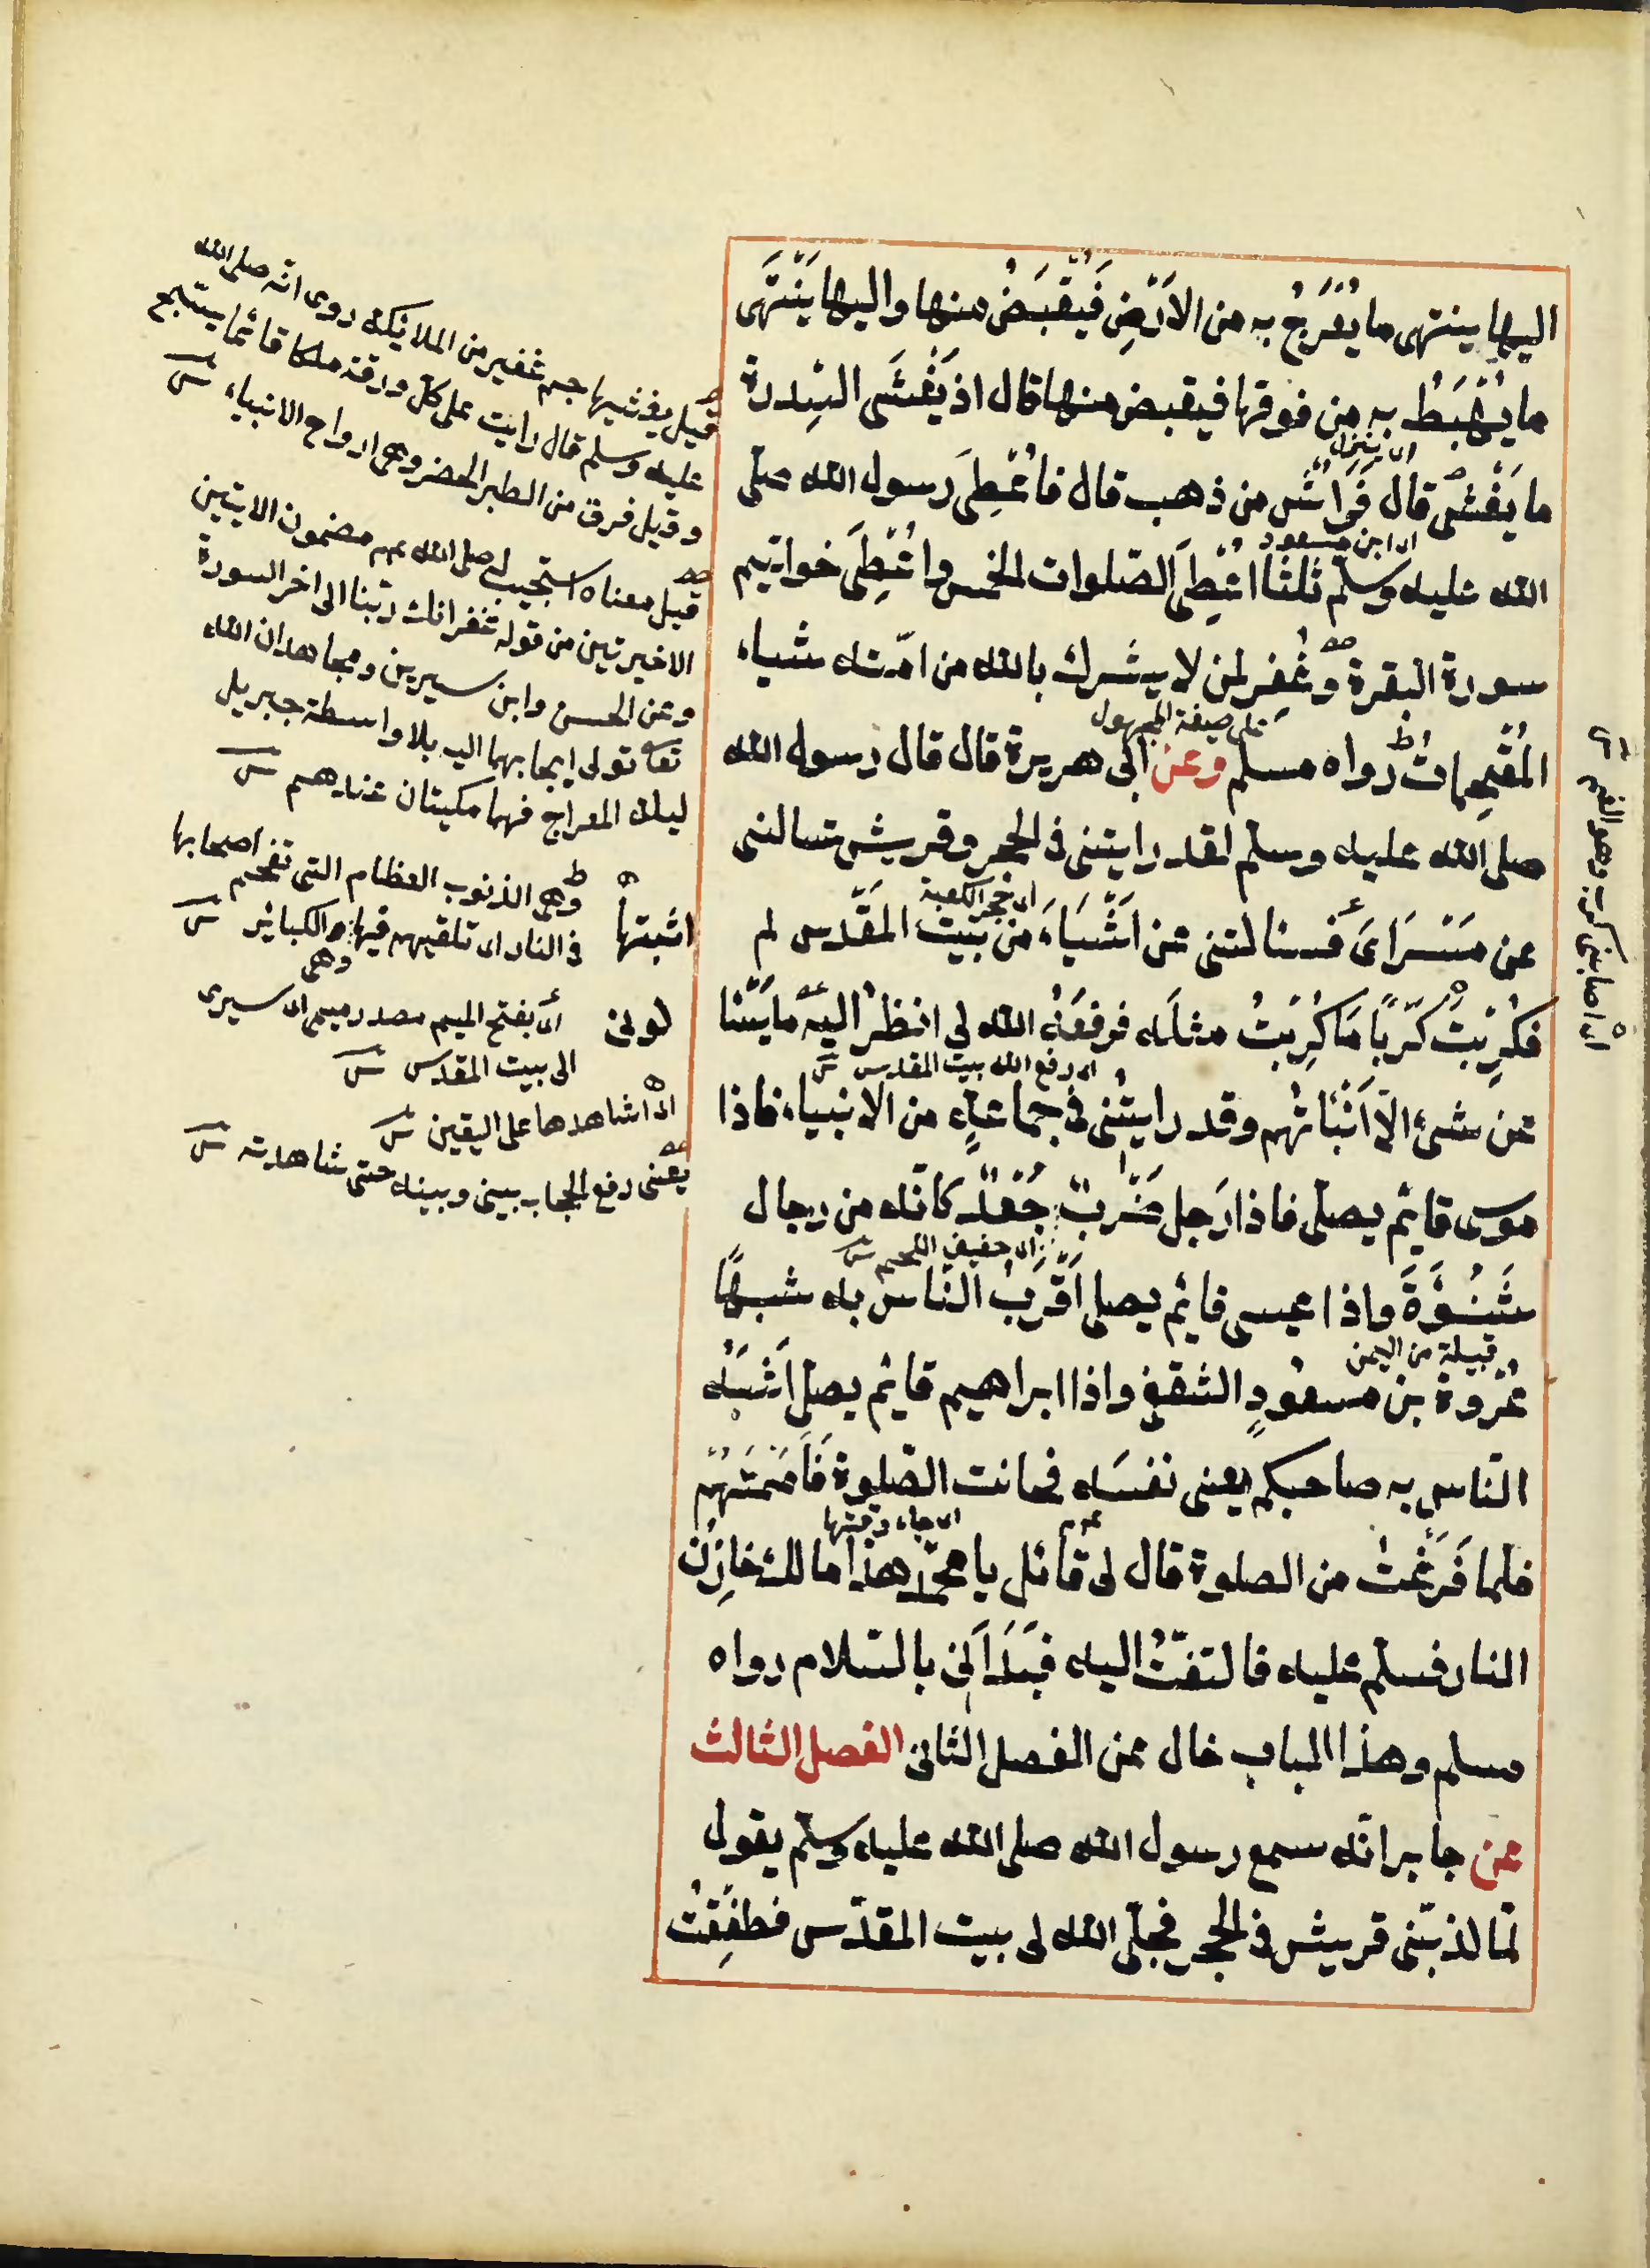 اليها ينتهى ما يُعْرَجُ به من الاَرْضِ فَيُقْبَضُ منها واليها يَنْتَهى
ما يُهْبَطُ به من فوقها فيقبض منها قال اذ يَغْشَى السِّدرة
اى ينزل
ما يَغْشَى قال فَرَاشٌ من ذهب قال فاُعْطِىَ رسول الله صلى
اى ابن مسعود
الله عليه وسلم ثلثا اُعْطِىَ الصلوات الخمس واُعْطِىَ خواتيم
سورة البقرة وغُفِر لمن لا يشرك بالله من امّته شيأ
على صيغة المجهول
المُقْحِماتُ رواه مسلم وعن ابى هريرة قال قال رسول الله
صلى الله عليه وسلم لقد رايتنى فى الحجر وقريش تسالنى
اى حجر الكعبة
عن مَسْرَاىَ فسألتنى عن اَشْيَاءَ من بَيْت المَقْدس لم اثبتها
فكُرِبْتُ كَرْبًا مَا كُرِبتُ مثلَه فرفعَهُ الله لى انظرُ اليْه ما يَسْئالونى
اى رفع الله بيت المقدس
عن شىء الّا اَنْبَأتُهم وقد رايتُنى فى جماعةٍ من الانبياء فاذا
موسى قايم يصلى فاذا رَجل ضَرْبٌ جَعْدٌ كانّه من رجال
اى خفيف اللحم
شَنُوْءَةَ واذا عيسى قايم يصلى اَقْرَبُ الناس به شبهًا
قبيلة من اليمن
عُرْوة بن مسعُودٍ الثقفى واذا ابراهيم قايم يصلى اَشْبَهُ
النّاس به صاحبكم يعنى نفسَه فحانت الصّلوة فَاَمَمْتُهُمْ
اى جاء وقتها
فلما فَرَغْتُ من الصلوة قال لى قائل يا محمد هذا مالك خازِنُ
النار فسلم عليه فالتفتُّ اليه فبَدَاَنى بالسّلام رواه
مسلم وهذا الباب خال عن الفصل الثانى الفصل الثالث
عن جابر انّه سمع رسول الله صلى الله عليه وسلم يقول
لمّا كذبّنى قريش فى الحجر فجلّى الله لى بيت المقدّس فطفِقْتُ
قيل يغشيها جم غفير من الملايكة روى انّه صلى الله
عليه وسلم قال رايت على كل ورقة ملكا قائما يسبّح
وقيل فرق من الطير الخضر وهى ارواح الانبياء
قيل معناه استجيب له صلى الله عم مضمون الايتين
الاخيرتين من قوله غفرانك ربّنا الى اخر السورة
وعن الحسن وابن سيرين ومجاهد ان الله
تعا تولى ايحا بهما اليه بلا واسطة جبريل
ليلة المعراج فهما مكيتان عندهم
وهى الذنوب العظام التى تقحم اصحابها
فى النار اى تلقيهم فيها وهى الكباير
اى بفتح الميم مصدر ميمى اى سيرى
الى بيت المقدس
اى اشاهدها على اليقين
يعنى رفع الحجاب بينى وبينه حتى شاهدته
اى اصابنى كرب وهو الغم